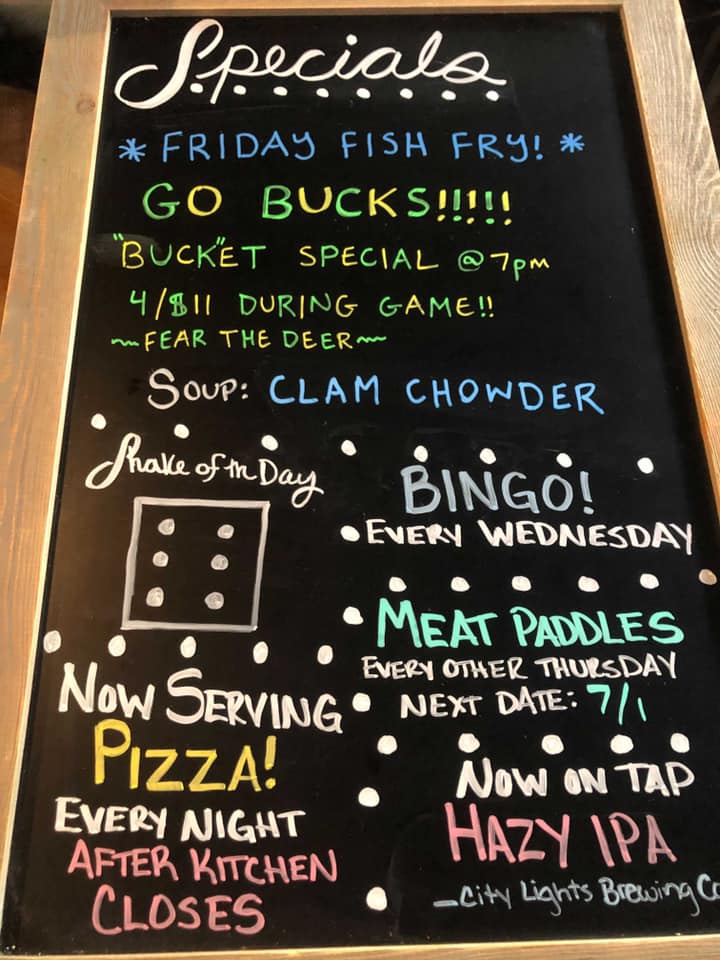 Specials
* FRIDAY FISH FRY! *
GO BUCKS!!!!!
"BUCK"ET SPECIAL @ 7pm
4/$11 DURING GAME!!
~FEAR THE DEER~
SOUP: CLAM CHOWDER
Shake of the Day
BINGO!
EVERY WEDNESDAY
MEAT PADDLES
EVERY OTHER THURSDAY
NEXT DATE: 7/1
NOW SERVING
PIZZA!
EVERY NIGHT
AFTER KITCHEN
CLOSES
NOW ON TAP
HAZY IPA
-City Lights Brewing Co